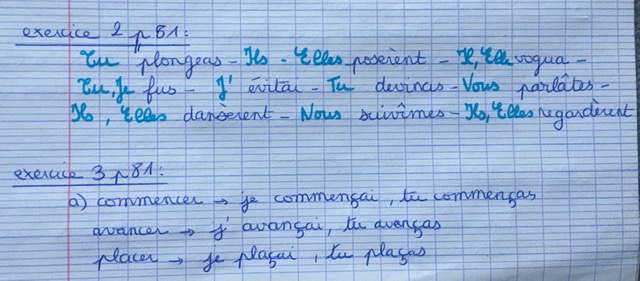 exercice 2 p 81 :
Tu plongeas - Ils - Elles posèrent - Il, Elle vogua -
Tu, Je fus - J' évitai - Tu devinas - Vous parlâtes -
Ils, Elles dansèrent - Nous suivîmes - Ils, Elles regardèrent
exercice 3 p 81 :
a) commencer → je commençai, tu commenças
avancer → j' avançai, tu avanças
placer → je plaçai, tu plaças